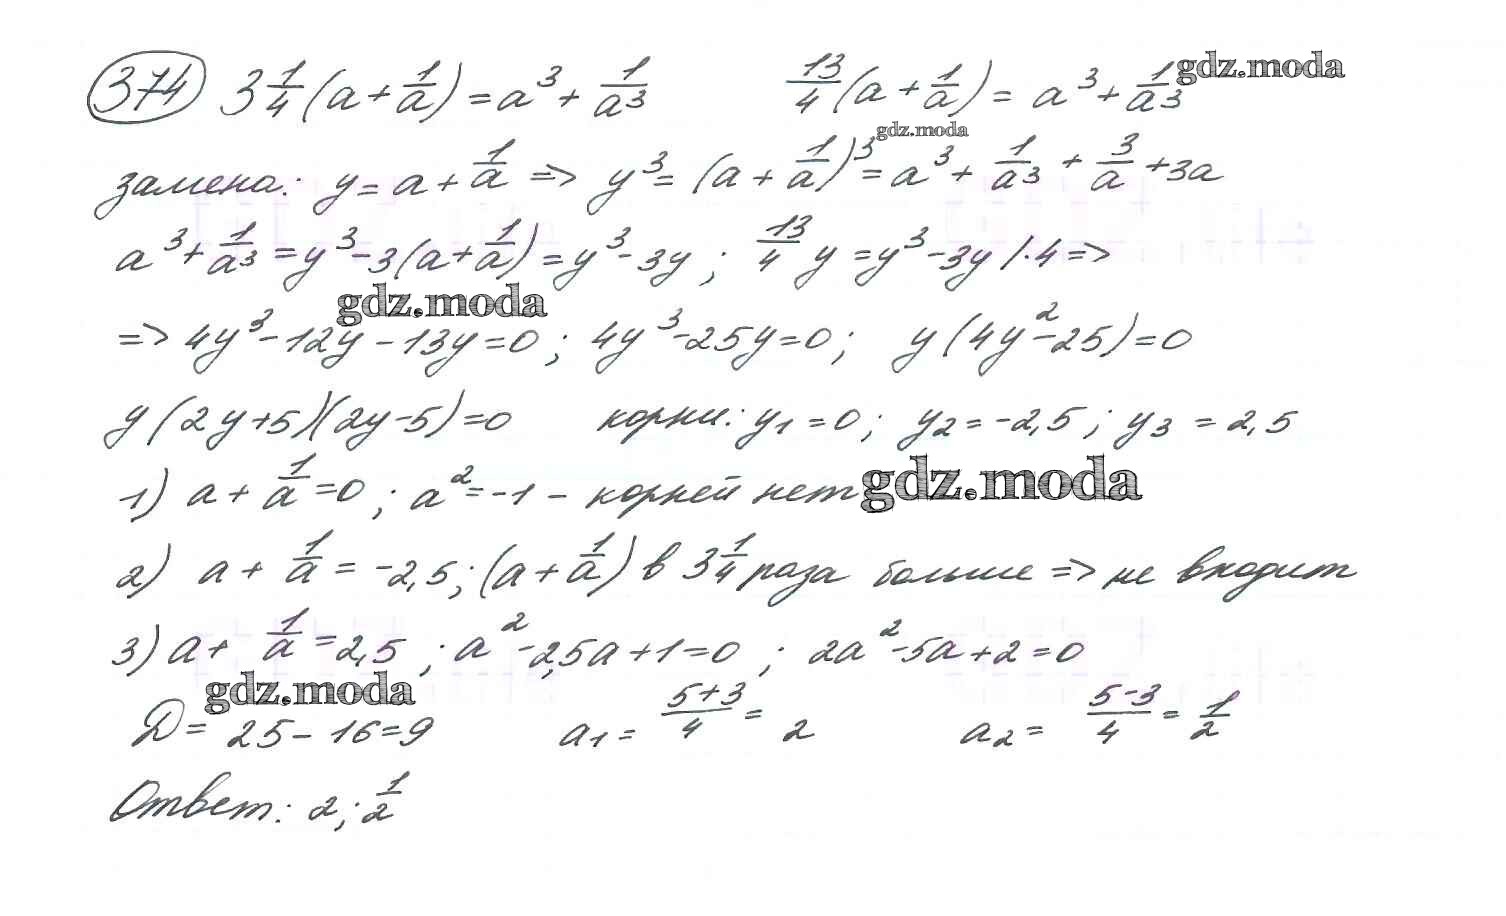 374 3 1/4 (a + 1/a) = a³ + 1/a³ 13/4 (a + 1/a) = a³ + 1/a³ gdz.moda
gdz.moda
замена: y = a + 1/a => y³ = (a + 1/a)³ = a³ + 1/a³ + 3/a + 3a
a³ + 1/a³ = y³ - 3(a + 1/a) = y³ - 3y ; 13/4 y = y³ - 3y /·4 =>
gdz.moda
=> 4y³ - 12y - 13y = 0 ; 4y³ - 25y = 0 ; y(4y² - 25) = 0
y(2y+5)(2y-5) = 0 корни: y₁ = 0 ; y₂ = -2,5 ; y₃ = 2,5
1) a + 1/a = 0 ; a² = -1 - корней нет gdz.moda
2) a + 1/a = -2,5 ; (a + 1/a) в 3 1/4 раза больше => не входит
3) a + 1/a = 2,5 ; a² - 2,5a + 1 = 0 ; 2a² - 5a + 2 = 0
gdz.moda
D = 25 - 16 = 9 a₁ = (5+3)/4 = 2 a₂ = (5-3)/4 = 1/2
Ответ: 2 ; 1/2